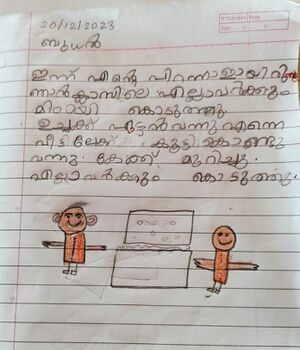 Teacher Page
Date / /
20/12/2023
ബുധൻ
ഇന്ന് എന്റെ പിറന്നാളായിരുന്നു
ഞാൻ ക്ലാസിലെ എല്ലാവർക്കും
മിഠായി കൊടുത്തു
ഉച്ചക്ക് ഏട്ടൻ വന്നു എന്നെ
വീട്ടിലേക്ക് കൂട്ടി കൊണ്ടു
വന്നു. കേക്ക് മുറിച്ചു.
എല്ലാവർക്കും കൊടുത്തു.